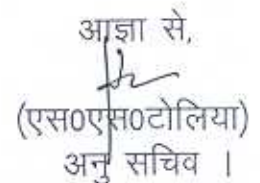 आज्ञा से,
(एस0एस0टोलिया)
अनु सचिव ।